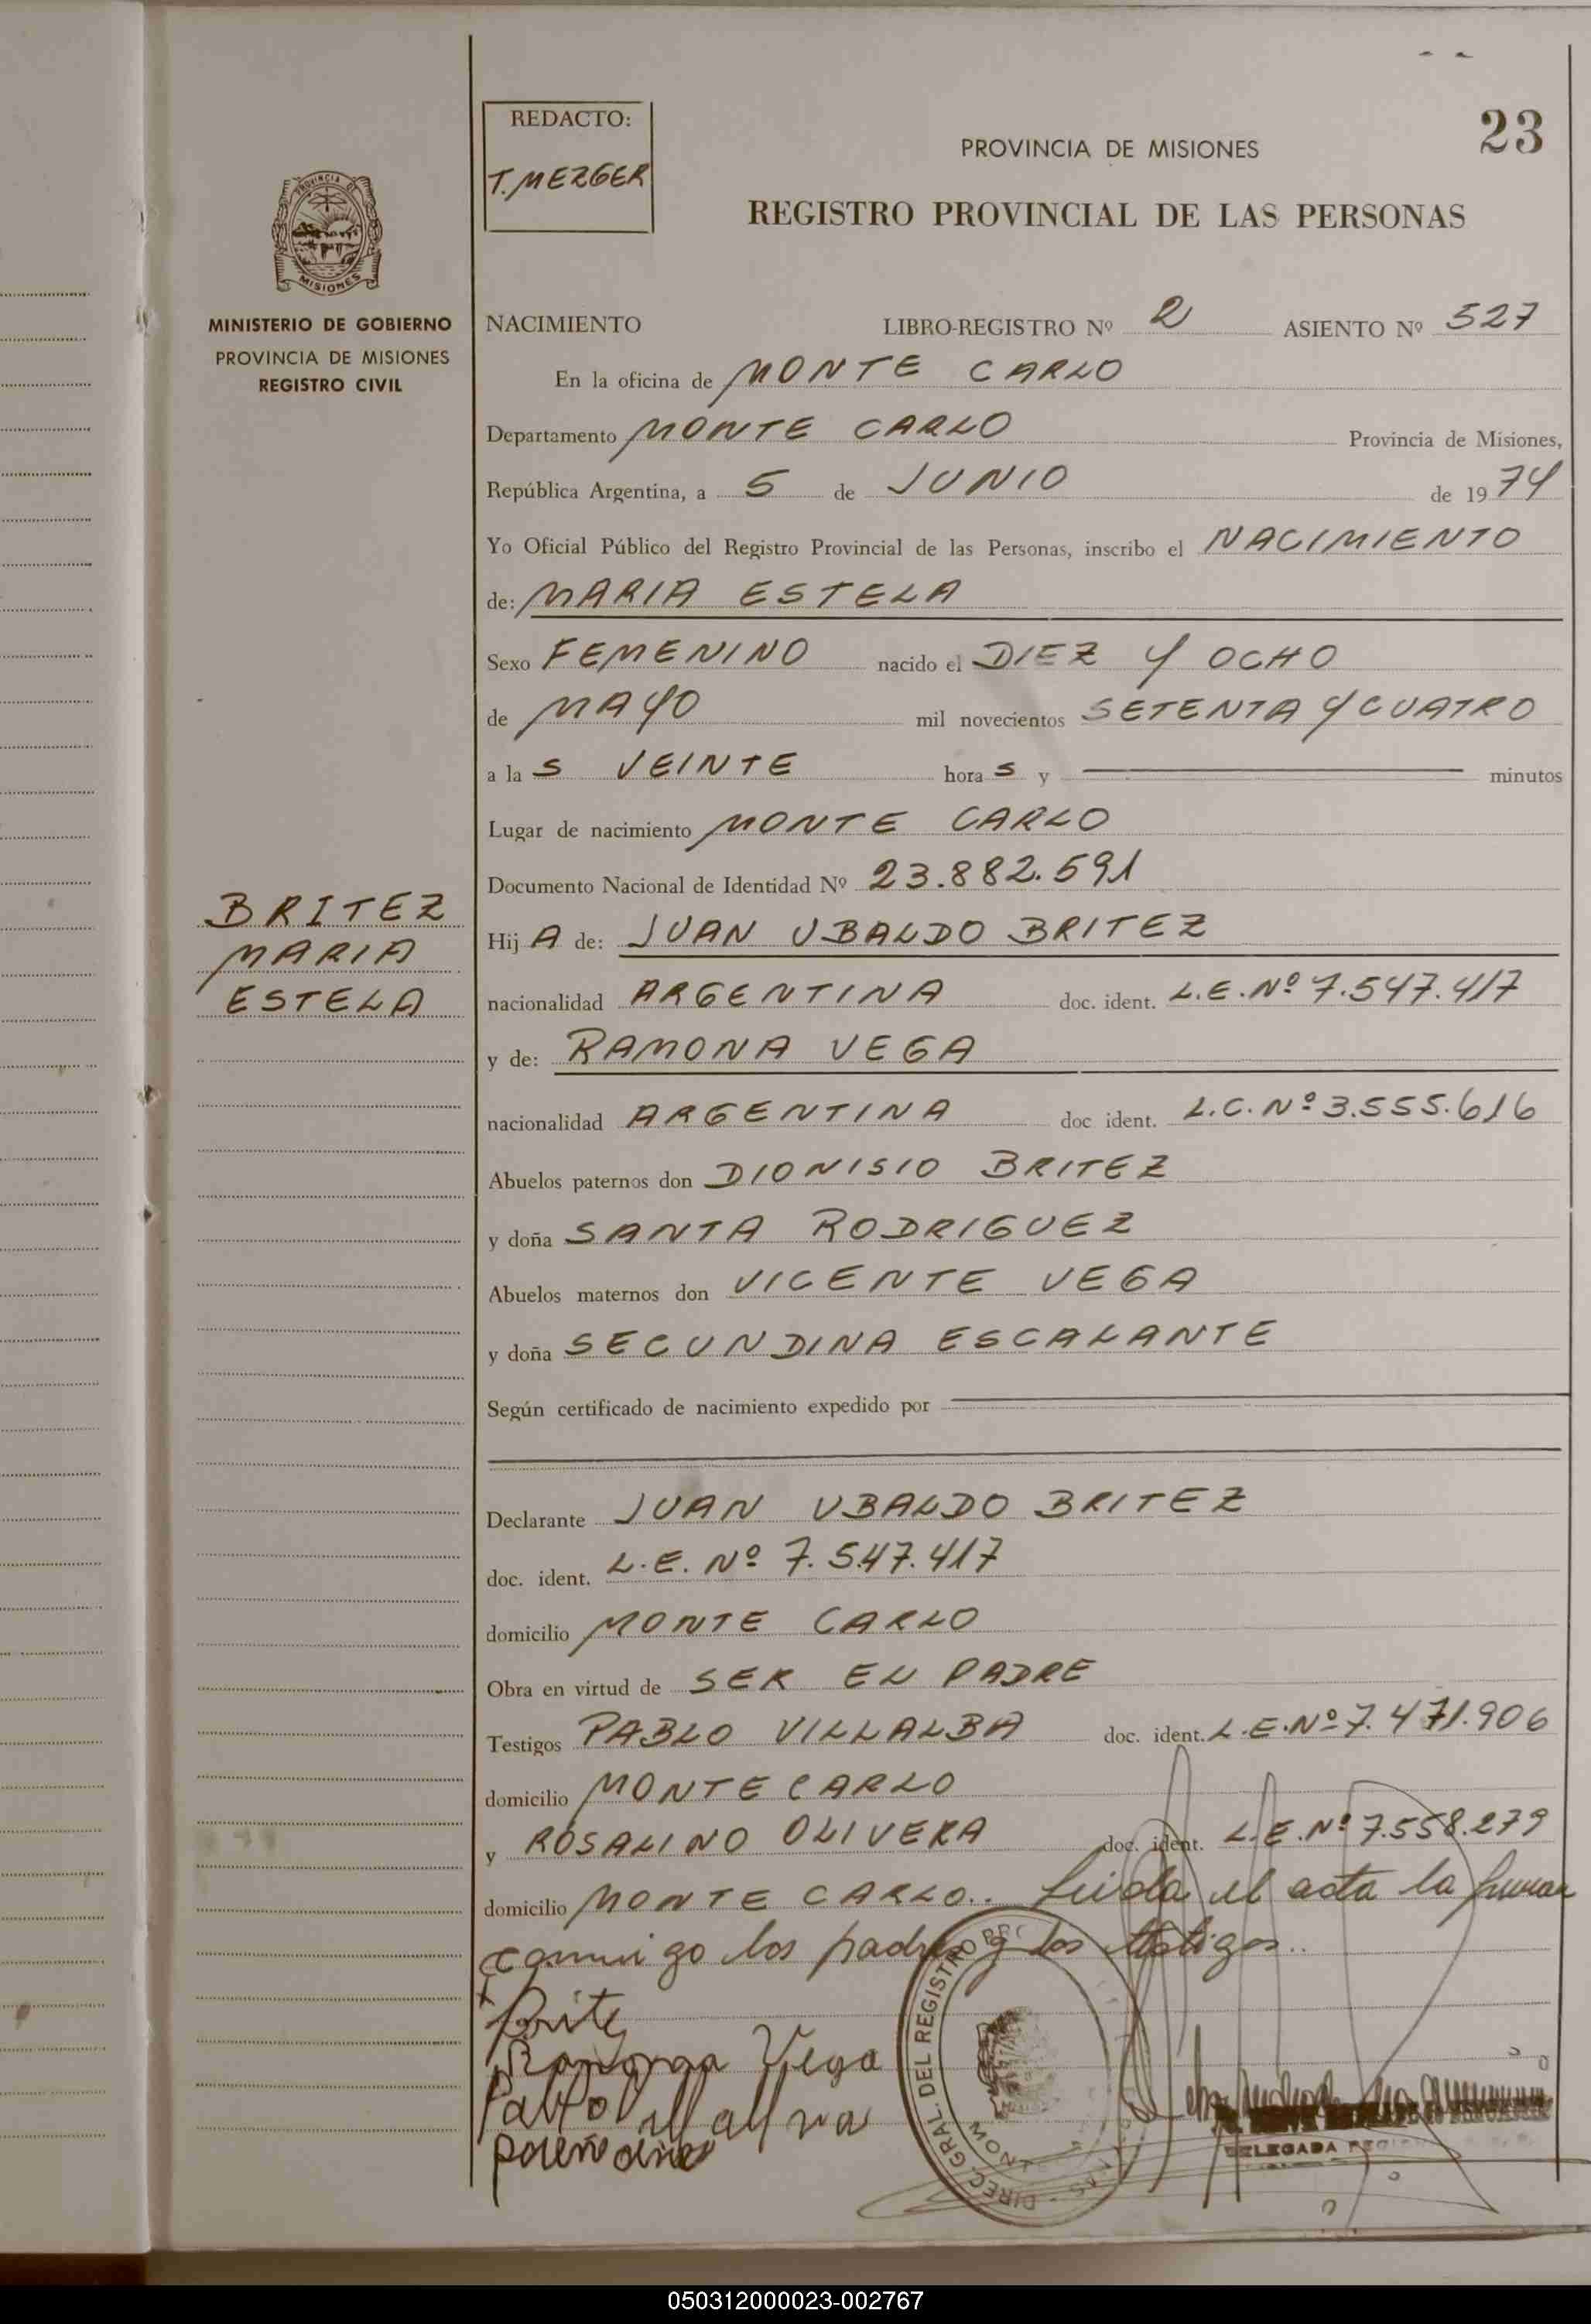 REDACTO:
T. MEZGER
23
PROVINCIA DE MISIONES
REGISTRO PROVINCIAL DE LAS PERSONAS
PROVINCIA DE
MISIONES
MINISTERIO DE GOBIERNO
PROVINCIA DE MISIONES
REGISTRO CIVIL
NACIMIENTO LIBRO-REGISTRO Nº 2 ASIENTO Nº 527
En la oficina de MONTE CARLO
Departamento MONTE CARLO Provincia de Misiones,
República Argentina, a 5 de JUNIO de 1974
Yo Oficial Público del Registro Provincial de las Personas, inscribo el NACIMIENTO
de: MARIA ESTELA
Sexo FEMENINO nacido el DIEZ Y OCHO
de MAYO mil novecientos SETENTA Y CUATRO
a la S VEINTE hora S y minutos
Lugar de nacimiento MONTE CARLO
Documento Nacional de Identidad Nº 23.882.591
BRITEZ
MARIA
ESTELA
Hij A de: JUAN UBALDO BRITEZ
nacionalidad ARGENTINA doc. ident. L.E. Nº 7.547.417
y de: RAMONA VEGA
nacionalidad ARGENTINA doc ident. L.C. Nº 3.555.616
Abuelos paternos don DIONISIO BRITEZ
y doña SANTA RODRIGUEZ
Abuelos maternos don VICENTE VEGA
y doña SECUNDINA ESCALANTE
Según certificado de nacimiento expedido por
Declarante JUAN UBALDO BRITEZ
doc. ident. L.E. Nº 7.547.417
domicilio MONTE CARLO
Obra en virtud de SER EL PADRE
Testigos PABLO VILLALBA doc. ident. L.E. Nº 7.471.906
domicilio MONTE CARLO
y ROSALINO OLIVERA doc. ident. L.E. Nº 7.558.279
domicilio MONTE CARLO.. Leida el acta la firman
conmigo los padres y los testigos..
Brite
Ramona Vega
DIREC. GRAL. DEL REGISTRO
DELEGADA
050312000023-002767